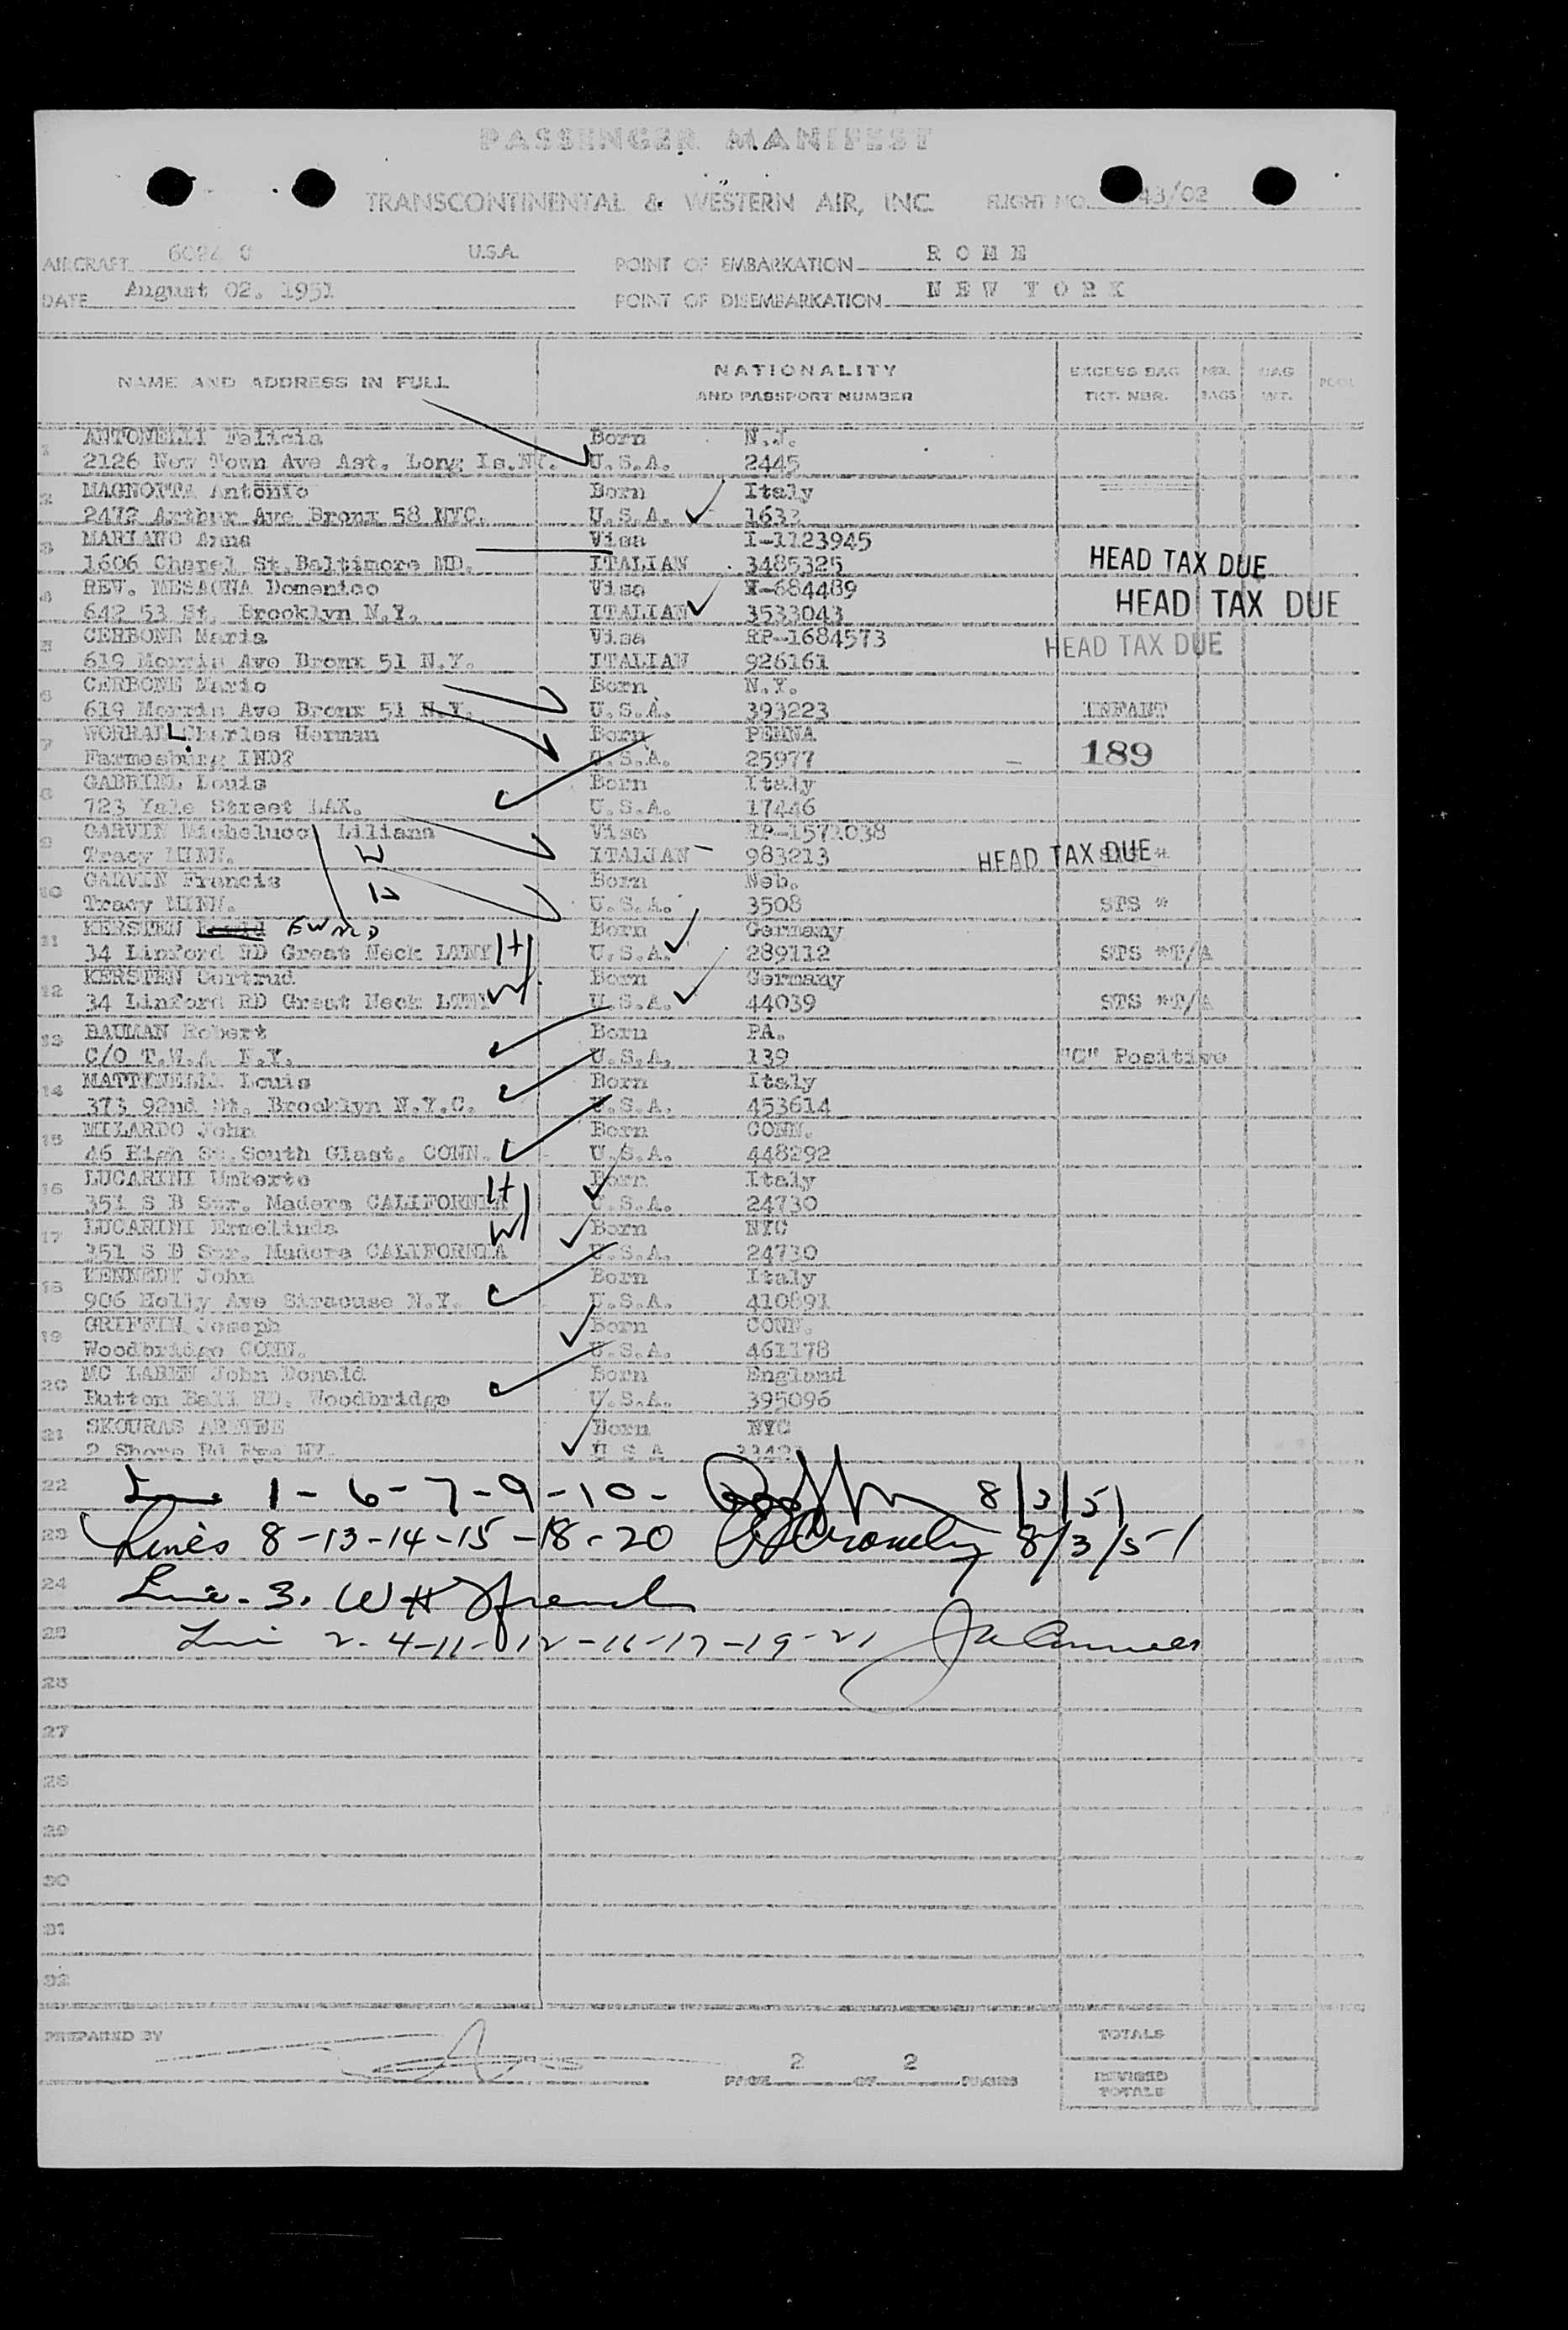 PASSENGER MANIFEST
TRANSCONTINENTAL & WESTERN AIR, INC. FLIGHT NO. 43/02
AIRCRAFT U.S.A. POINT OF EMBARKATION ROME
DATE August 02. 1951 POINT OF DISEMBARKATION NEW YORK
NAME AND ADDRESS IN FULL NATIONALITY AND PASSPORT NUMBER EXCESS BAG TKT. NBR. NBR. BAGS BAG WT. POOL
1 ANTONELLI Felicia Born N.J.
2126 New Town Ave Ast. Long Is.NY. U.S.A. 2445
2 MAGNOTTA Antonio Born Italy
2472 Arthur Ave Bronx 58 NYC. U.S.A. 1632
3 MARIANO Anna Visa I-1123945
1606 Chapel St.Baltimore MD. ITALIAN 3485325 HEAD TAX DUE
4 REV. MESAGNA Domenico Visa 684489
642 53 St. Brooklyn N.Y. ITALIAN 3533043 HEAD TAX DUE
5 CERBONE Maria Visa RP-1684573
619 Morris Ave Bronx 51 N.Y. ITALIAN 926161 HEAD TAX DUE
6 CERBONE Mario Born N.Y.
619 Morris Ave Bronx 51 N.Y. U.S.A. 393223 INFANT
7 WORRALL Charles Herman Born PENNA
Farmesburg IND? U.S.A. 25977 189
8 GABRIEL Louis Born Italy
723 Yale Street LAX. U.S.A. 17446
9 GARVIN Micheluccı Liliana Visa RP-1571038
Tracy MINN. W ITALIAN 983213 HEAD TAX DUE
10 GARVIN Francis Born Neb.
Tracy MINN. U.S.A. 3508 STS *
11 KERSTEN Born Germany
34 Linford RD Great Neck LINY H U.S.A. 289112 STS *T/A
12 KERSTEN Gertrud Born Germany
34 Linford RD Great Neck LINY W U.S.A. 44039 STS *T/A
13 BAUMAN Robert Born PA.
C/O T.W.A. N.Y. U.S.A. 139 "C" Positive
14 MATTINELLI Louis Born Italy
373 92nd St. Brooklyn N.Y.C. U.S.A. 453614
15 MILARDO John Born CONN.
46 High St.South Glast. CONN. U.S.A. 448292
16 LUCARINI Umberto Born Italy
351 S B Str. Madera CALIFORNIA H U.S.A. 24730
17 LUCARINI Ermelinda Born NYC
351 S B Str. Madera CALIFORNIA W U.S.A. 24730
18 KENNEDY John Born Italy
906 Holly Ave Siracuse N.Y. U.S.A. 410891
19 GRIFFIN Joseph Born CONN.
Woodbridge CONN. U.S.A. 461178
20 MC LAREN John Donald Born England
Button Ball RD. Woodbridge U.S.A. 395096
21 SKOURAS Born NYC
2 Shore Rd Rye NY. U S A
22 1-6-7-9-10- 8/3/51
23 Lines 8-13-14-15-18-20 8/3/51
24 Line. 3. W H French
25 Line 2-4-11-12-16-17-19-21
26
27
28
29
30
31
32
PREPARED BY PAGE 2 OF 2 PAGES
TOTALS
REVISED TOTALS